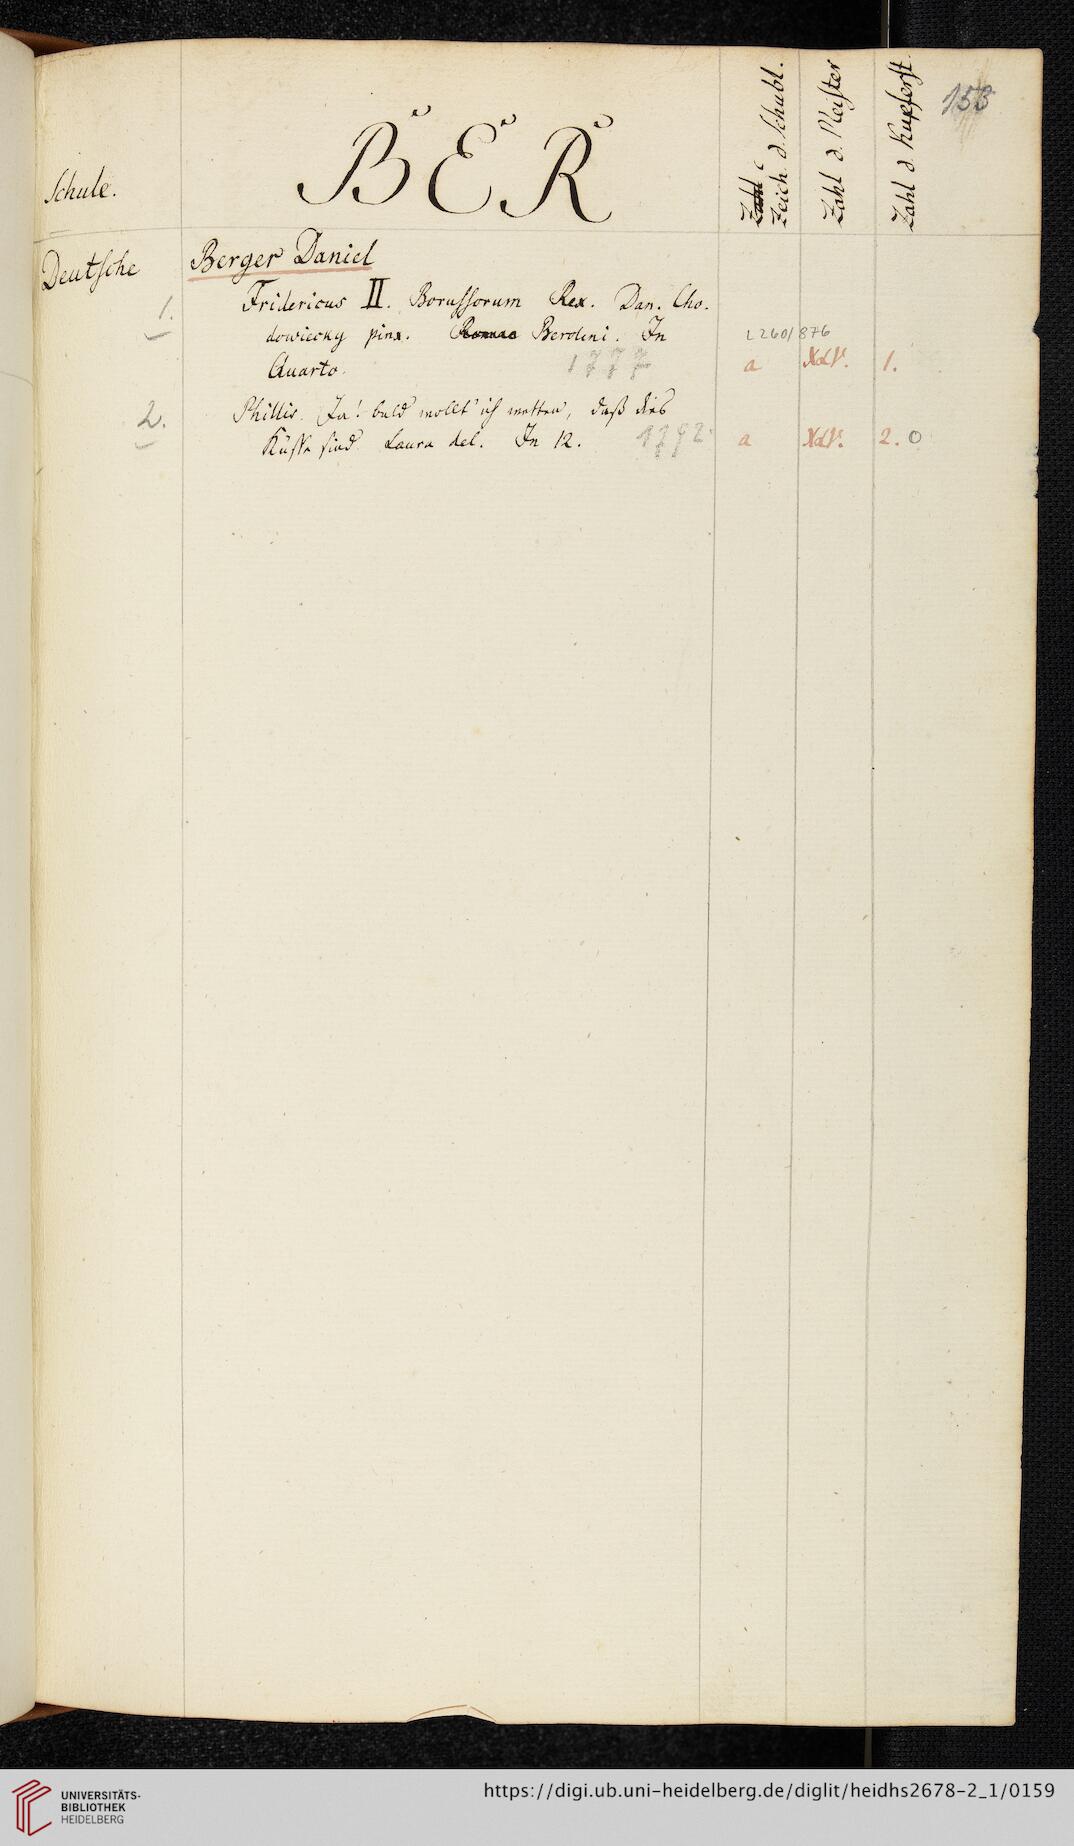 153
Schule.
BER
Zahl
Zeich. d. Schubl.
Zahl d. Meister
Zahl d. Kupferst.
Deutsche
Berger Daniel
1.
Fridericus II. Borussorum Rex. Dan. Cho.
dowiecky pinx. Romae Berolini. In
L 260/876
Quarto.
1777
a
1.
2.
Phillis. Ja! bald wollt' ich wetten, daß dies
Küsse sind Laura del. In 12.
1792.
a
2. O
UNIVERSITÄTS-
BIBLIOTHEK
HEIDELBERG
https://digi.ub.uni-heidelberg.de/diglit/heidhs2678-2_1/0159